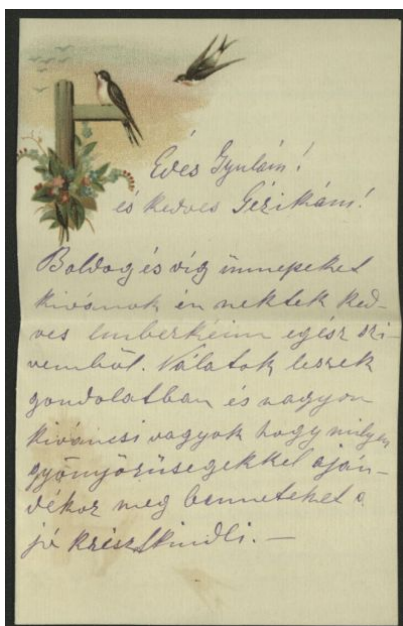 Édes Gyulám!
és kedves Gézikám!
Boldog és víg ünnepeket
kivánok én nektek ked-
ves emberkéim egész szi-
vemből. Nálatok leszek
gondolatban és nagyon
kiváncsi vagyok hogy milyen
gyönyörüségekkel aján-
dékoz meg benneteket a
jó Kriszkindli. —